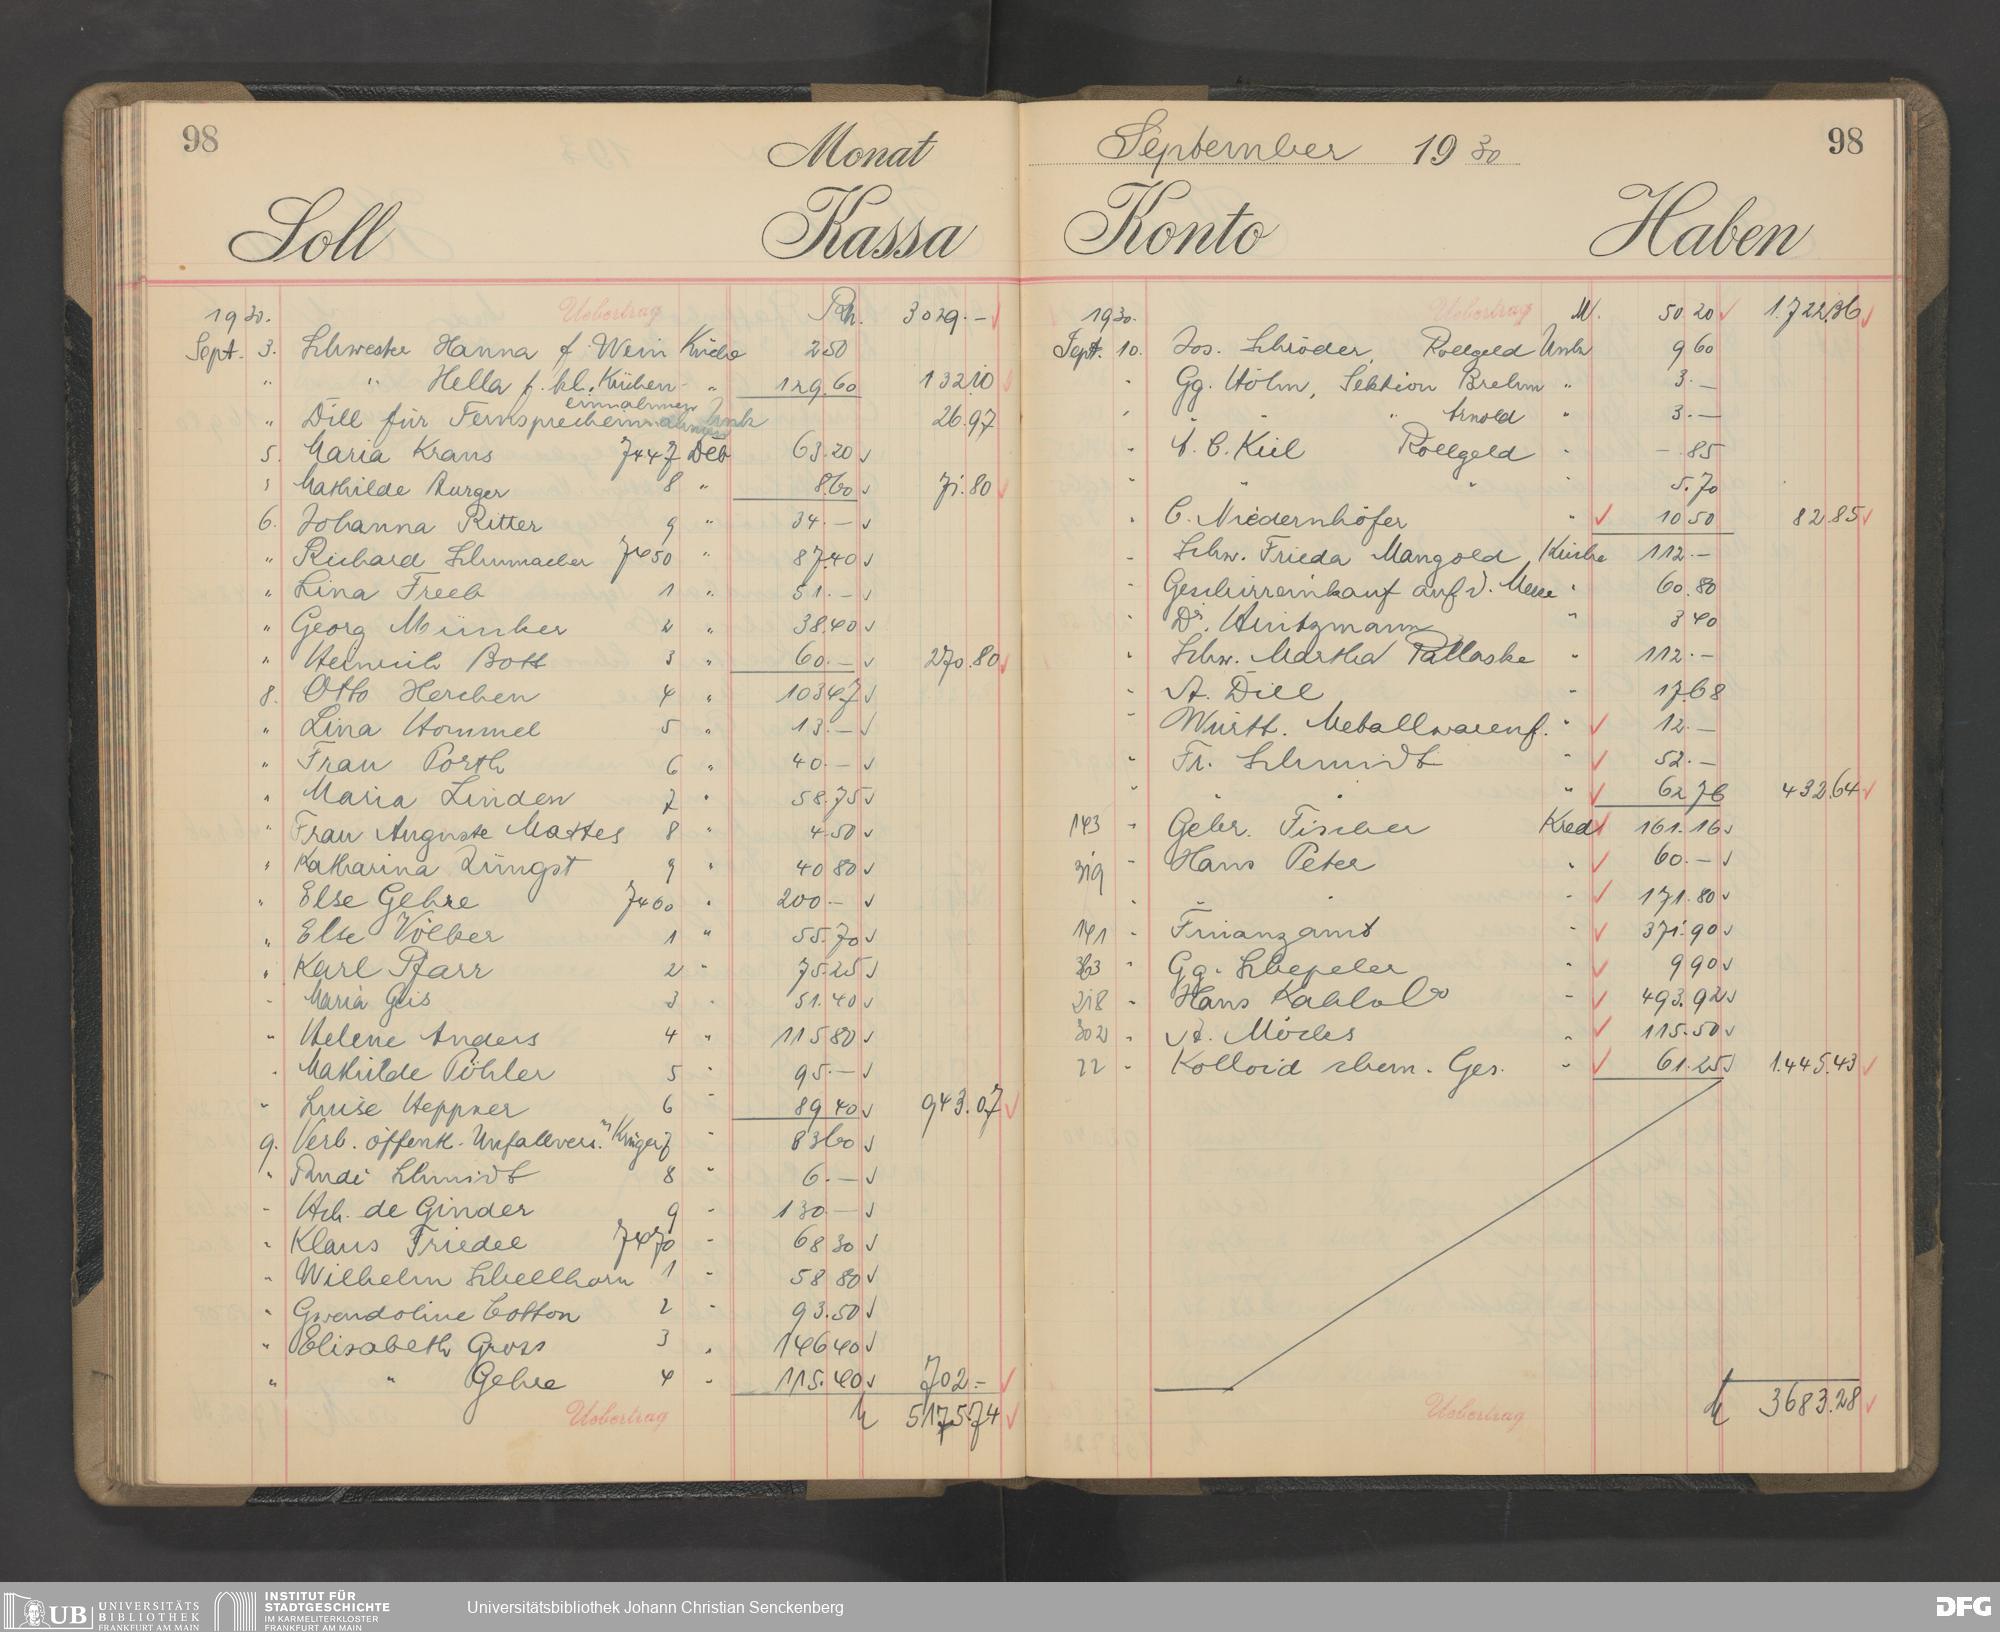 98
Monat
Soll
Kassa
1930.
Uebertrag
3029.—
Sept. 3. Schwester Hanna f. Wein Küche 2 50
" " Hella f. kl. Küchen- " 129.60 132.10
einnahmen
" Dill für Fernsprecheinnahmen Unk 26.97
5. Maria Kraus 7447 Deb 63.20
" Mathilde Burger 8 " 8.60 71.80
6. Johanna Ritter 9 " 34.—
" Richard Schumacher 7450 " 87.40
" Lina Freeb 1 " 51.—
" Georg Münker 2 " 38.40
" Heinrich Bott 3 " 60.— 270.80
8. Otto Herchen 4 " 103 47
" Lina Hommel 5 " 13.—
" Frau Porth 6 " 40.—
" Maria Linden 7 " 58.75
" Frau Auguste Mattes 8 " 4.50
" Katharina Züngst 9 " 40 80
" Else Gehre 7460 " 200.—
" Else Völker 1 " 55.70
" Karl Pfarr 2 " 75.25
" Maria Geis 3 " 51.40
" Helene Anders 4 " 115 80
" Mathilde Pöhler 5 " 95.—
" Luise Heppner 6 " 89 40 943.07
9. Verb. öffentl. Unfallvers. "Krüger" 7 " 83 60
" Schmidt 8 " 6.—
" Hch. de Ginder 9 " 130.—
" Klaus Friedel 7470 " 68 30
" Wilhelm Schellhorn 1 " 58 80
" Gwendoline Cotton 2 " 93.50
" Elisabeth Gross 3 " 146 40
" " Gehre 4 " 115.40 702.—
Uebertrag
5175.74
98
September 1930
Konto
Haben
1930.
Uebertrag
M. 50 20 1.722.36
Sept. 10. Jos. Schröder, Rollgeld Unk 9 60
" Gg. Höhn, Sektion Brehm " 3.—
" " " " Arnold " 3.—
" A. C. Kiel Rollgeld " —.85
" " " " 5.70
" C. Niedernhöfer " 10 50 82.85
" Schw. Frieda Mangold Küche 112.—
" Geschirreinkauf auf d. Messe " 60.80
" Dr. Hintzmann " 3 40
" Schw. Martha Pallaske " 112.—
" A. Dill " 17.68
" Württ. Metallwarenf. " 12.—
" Fr. Schmidt " 52.—
" " " " 62 76 432.64
143 " Gebr. Fischer Kred 161.16
319 " Hans Peter " 60.—
" " " " 171.80
141 " Finanzamt " 371.90
363 " Gg. Schepeler " 9 90
218 " Hans 493.92
302 " A. Möcles " 115.50
22 " Kolloid chem. Ges. " 61.25 1.445.43
Uebertrag
3683.28
UB UNIVERSITÄTS
BIBLIOTHEK
FRANKFURT AM MAIN
INSTITUT FÜR
STADTGESCHICHTE
IM KARMELITERKLOSTER
FRANKFURT AM MAIN
Universitätsbibliothek Johann Christian Senckenberg
DFG